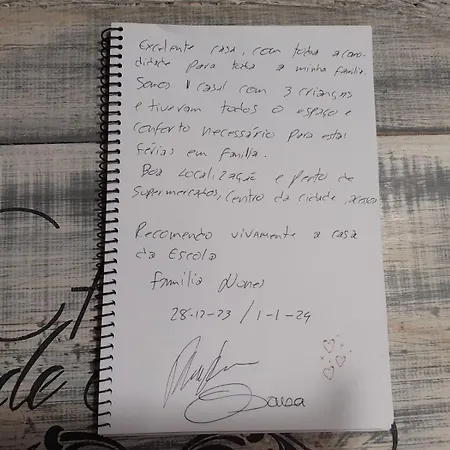 Excelente casa, com toda a como-
didade para toda a minha familia.
Somos 1 casal com 3 crianças
e tiveram todos o espaço e
conforto necessário para estas
férias em familia.
Boa Localização e perto de
Supermercados, centro da cidade,
Recomendo vivamente a casa
da Escola
Familia Nunes
28-12-23 / 1-1-24
Sousa